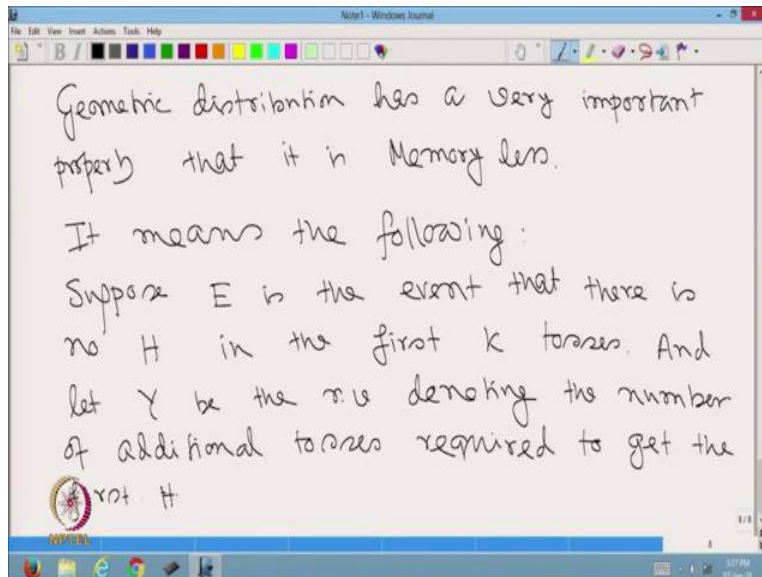 Note1 - Windows Journal
File Edit View Insert Actions Tools Help
Geometric distribution has a very important
property that it is Memory less.
It means the following:
Suppose E is the event that there is
no H in the first K tosses. And
let Y be the r.v denoting the number
of additional tosses required to get the
first H.
NPTEL
8/8
8
5:07 PM